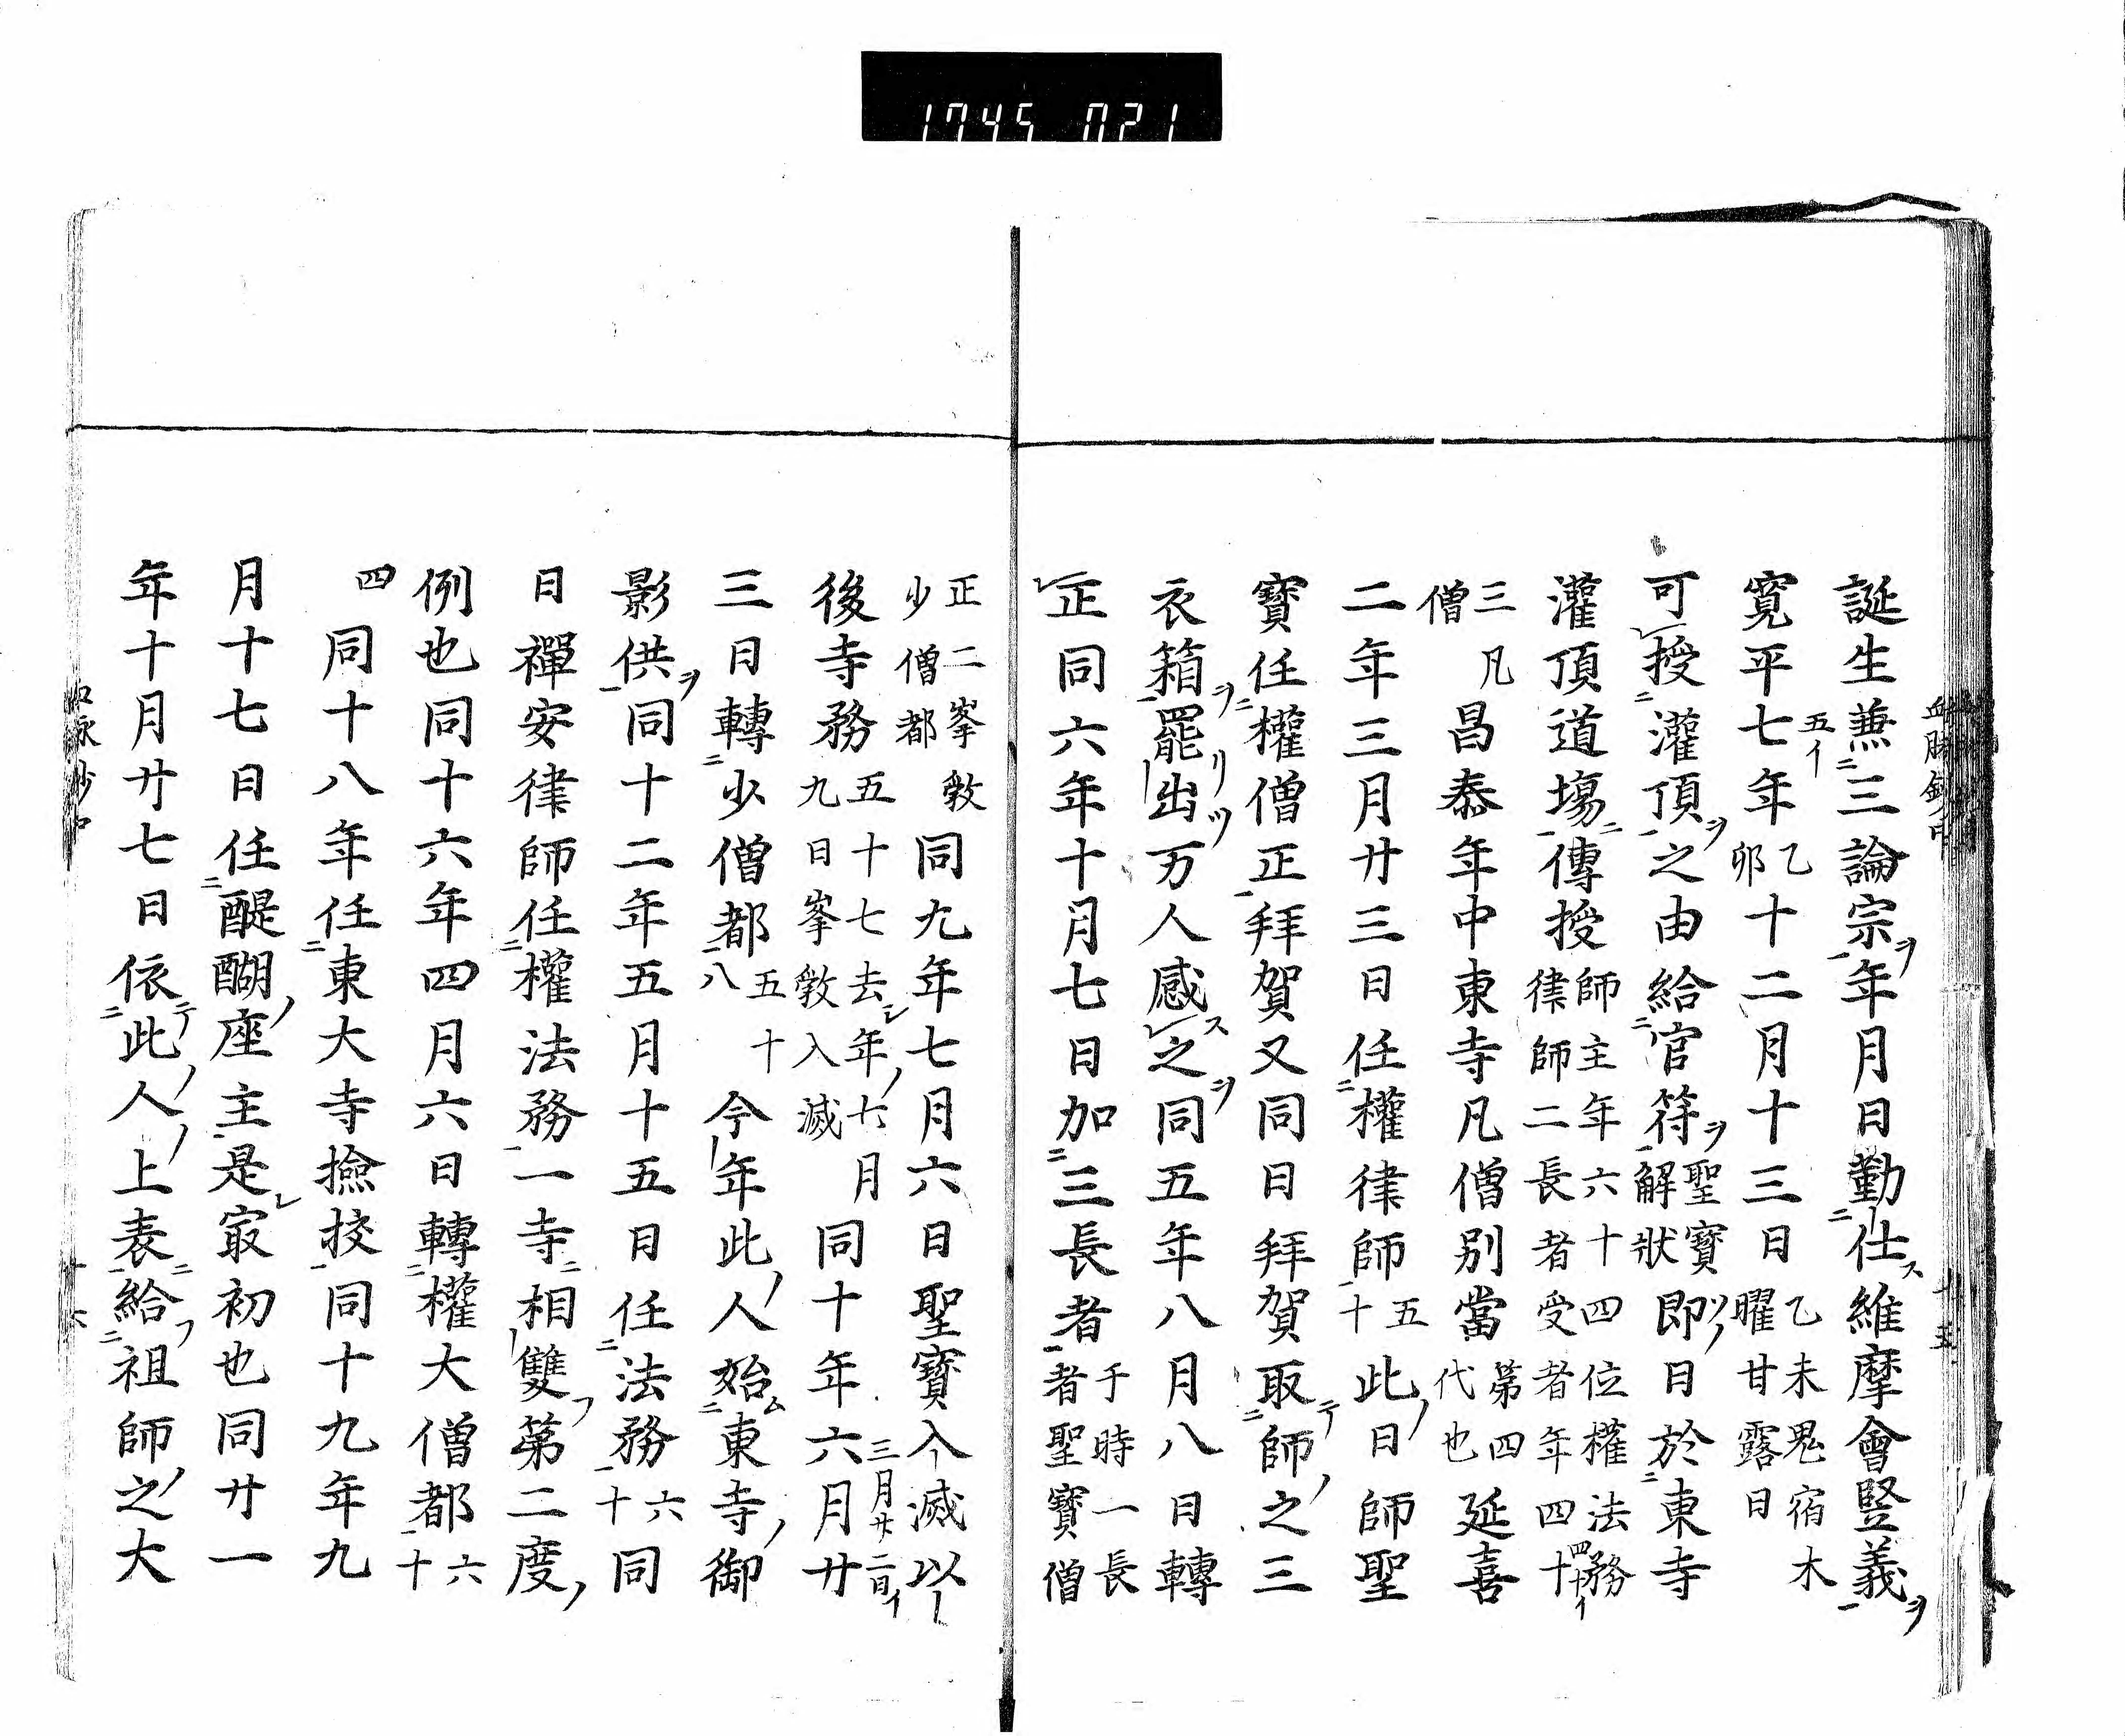 1745 021
誕生兼三論宗年月日勤仕維摩會竪義
寛平七年乙卯十二月十三日乙未鬼宿木曜甘露日
可授灌頂之由給官符聖寶解狀即日於東寺
灌頂道場傳授師主年六十四位權法務律師二長者受者年四十
三凡僧昌泰年中東寺凡僧別當第四代也延喜
二年三月廿三日任權律師五十此日師聖
寶任權僧正拜賀又同日拜賀取師之三
衣箱罷出万人感之同五年八月八日轉
正同六年十月七日加三長者于時一長者聖寶僧
正二峯斅少僧都同九年七月六日聖寶入滅以
後寺務五十七去年六月九日峯斅入滅同十年六月廿
三日轉少僧都五十八今年此人始東寺御
影供同十二年五月十五日任法務六十同
日禪安律師任權法務一寺相雙第二度
例也同十六年四月六日轉權大僧都六十
四同十八年任東大寺撿挍同十九年九
月十七日任醍醐座主是冣初也同廿一
年十月廿七日依此人上表給祖師之大